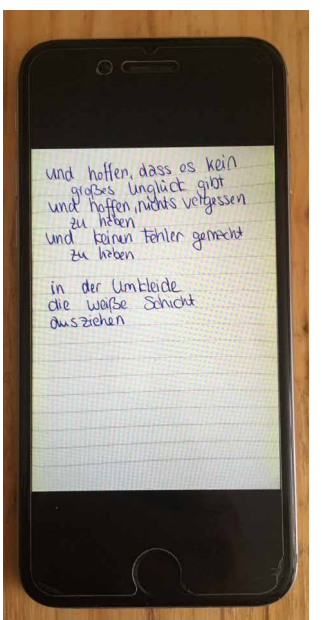 und hoffen, dass es kein
großes Unglück gibt
und hoffen, nichts vergessen
zu haben
und keinen Fehler gemacht
zu haben
in der Umkleide
die weiße Schicht
ausziehen